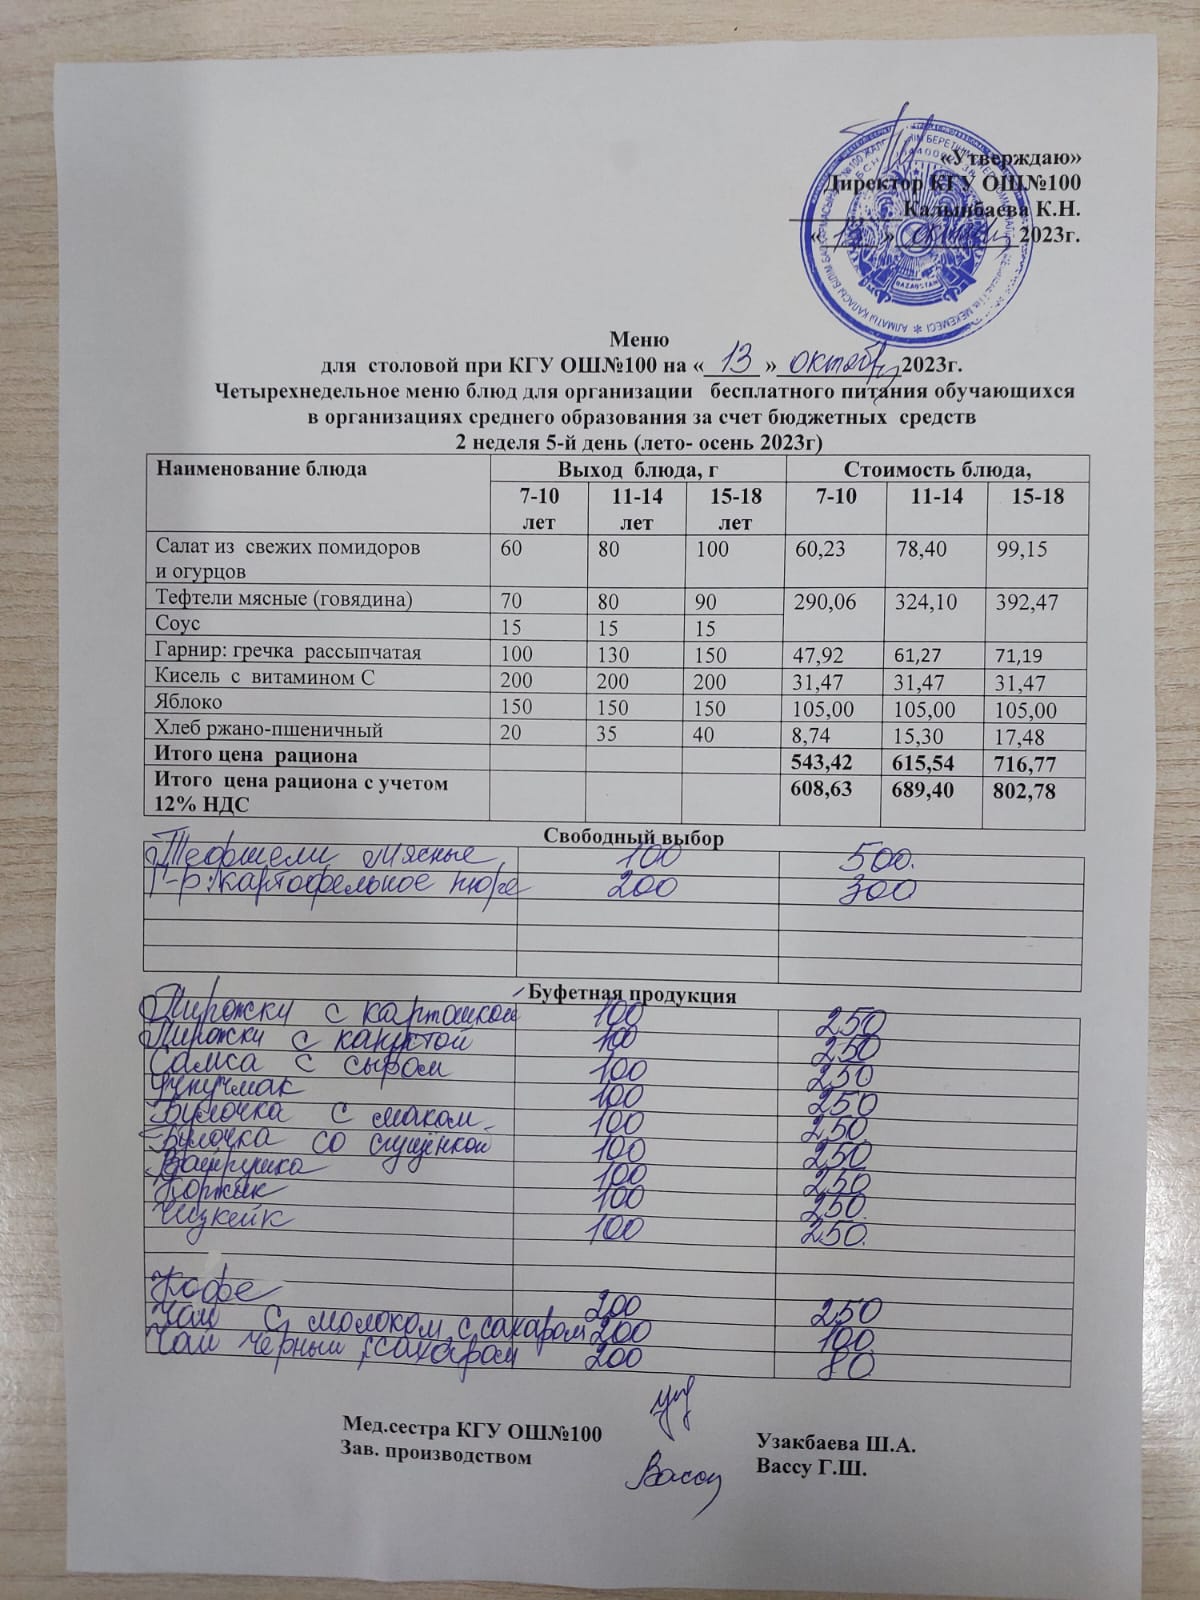 «Утверждаю»
Директор КГУ ОШ№100
Калынбаева К.Н.
«13» октябрь 2023г.
Меню
для столовой при КГУ ОШ№100 на « 13 » октябрь 2023г.
Четырехнедельное меню блюд для организации бесплатного питания обучающихся
в организациях среднего образования за счет бюджетных средств
2 неделя 5-й день (лето- осень 2023г)
Наименование блюда Выход блюда, г Стоимость блюда,
7-10 лет 11-14 лет 15-18 лет 7-10 11-14 15-18
Салат из свежих помидоров и огурцов 60 80 100 60,23 78,40 99,15
Тефтели мясные (говядина) 70 80 90 290,06 324,10 392,47
Соус 15 15 15
Гарнир: гречка рассыпчатая 100 130 150 47,92 61,27 71,19
Кисель с витамином С 200 200 200 31,47 31,47 31,47
Яблоко 150 150 150 105,00 105,00 105,00
Хлеб ржано-пшеничный 20 35 40 8,74 15,30 17,48
Итого цена рациона 543,42 615,54 716,77
Итого цена рациона с учетом 12% НДС 608,63 689,40 802,78
Свободный выбор
Тефтели мясные 100 500.
Г-р: картофельное пюре 200 300
Буфетная продукция
Пирожки с картошкой 100 250
Пирожки с капустой 100 250
Самса с сыром 100 250
Учпучмак 100 250
Булочка с маком 100 250
Булочка со сгущенкой 100 250
Ватрушка 100 250
Коржик 100 250.
Чизкейк 100 250.
Кофе 200 250
Чай с молоком, с сахаром 200 100
Чай черный с сахаром 200 80
Мед.сестра КГУ ОШ№100 Узакбаева Ш.А.
Зав. производством Вассу Г.Ш.
QAZAQSTAN